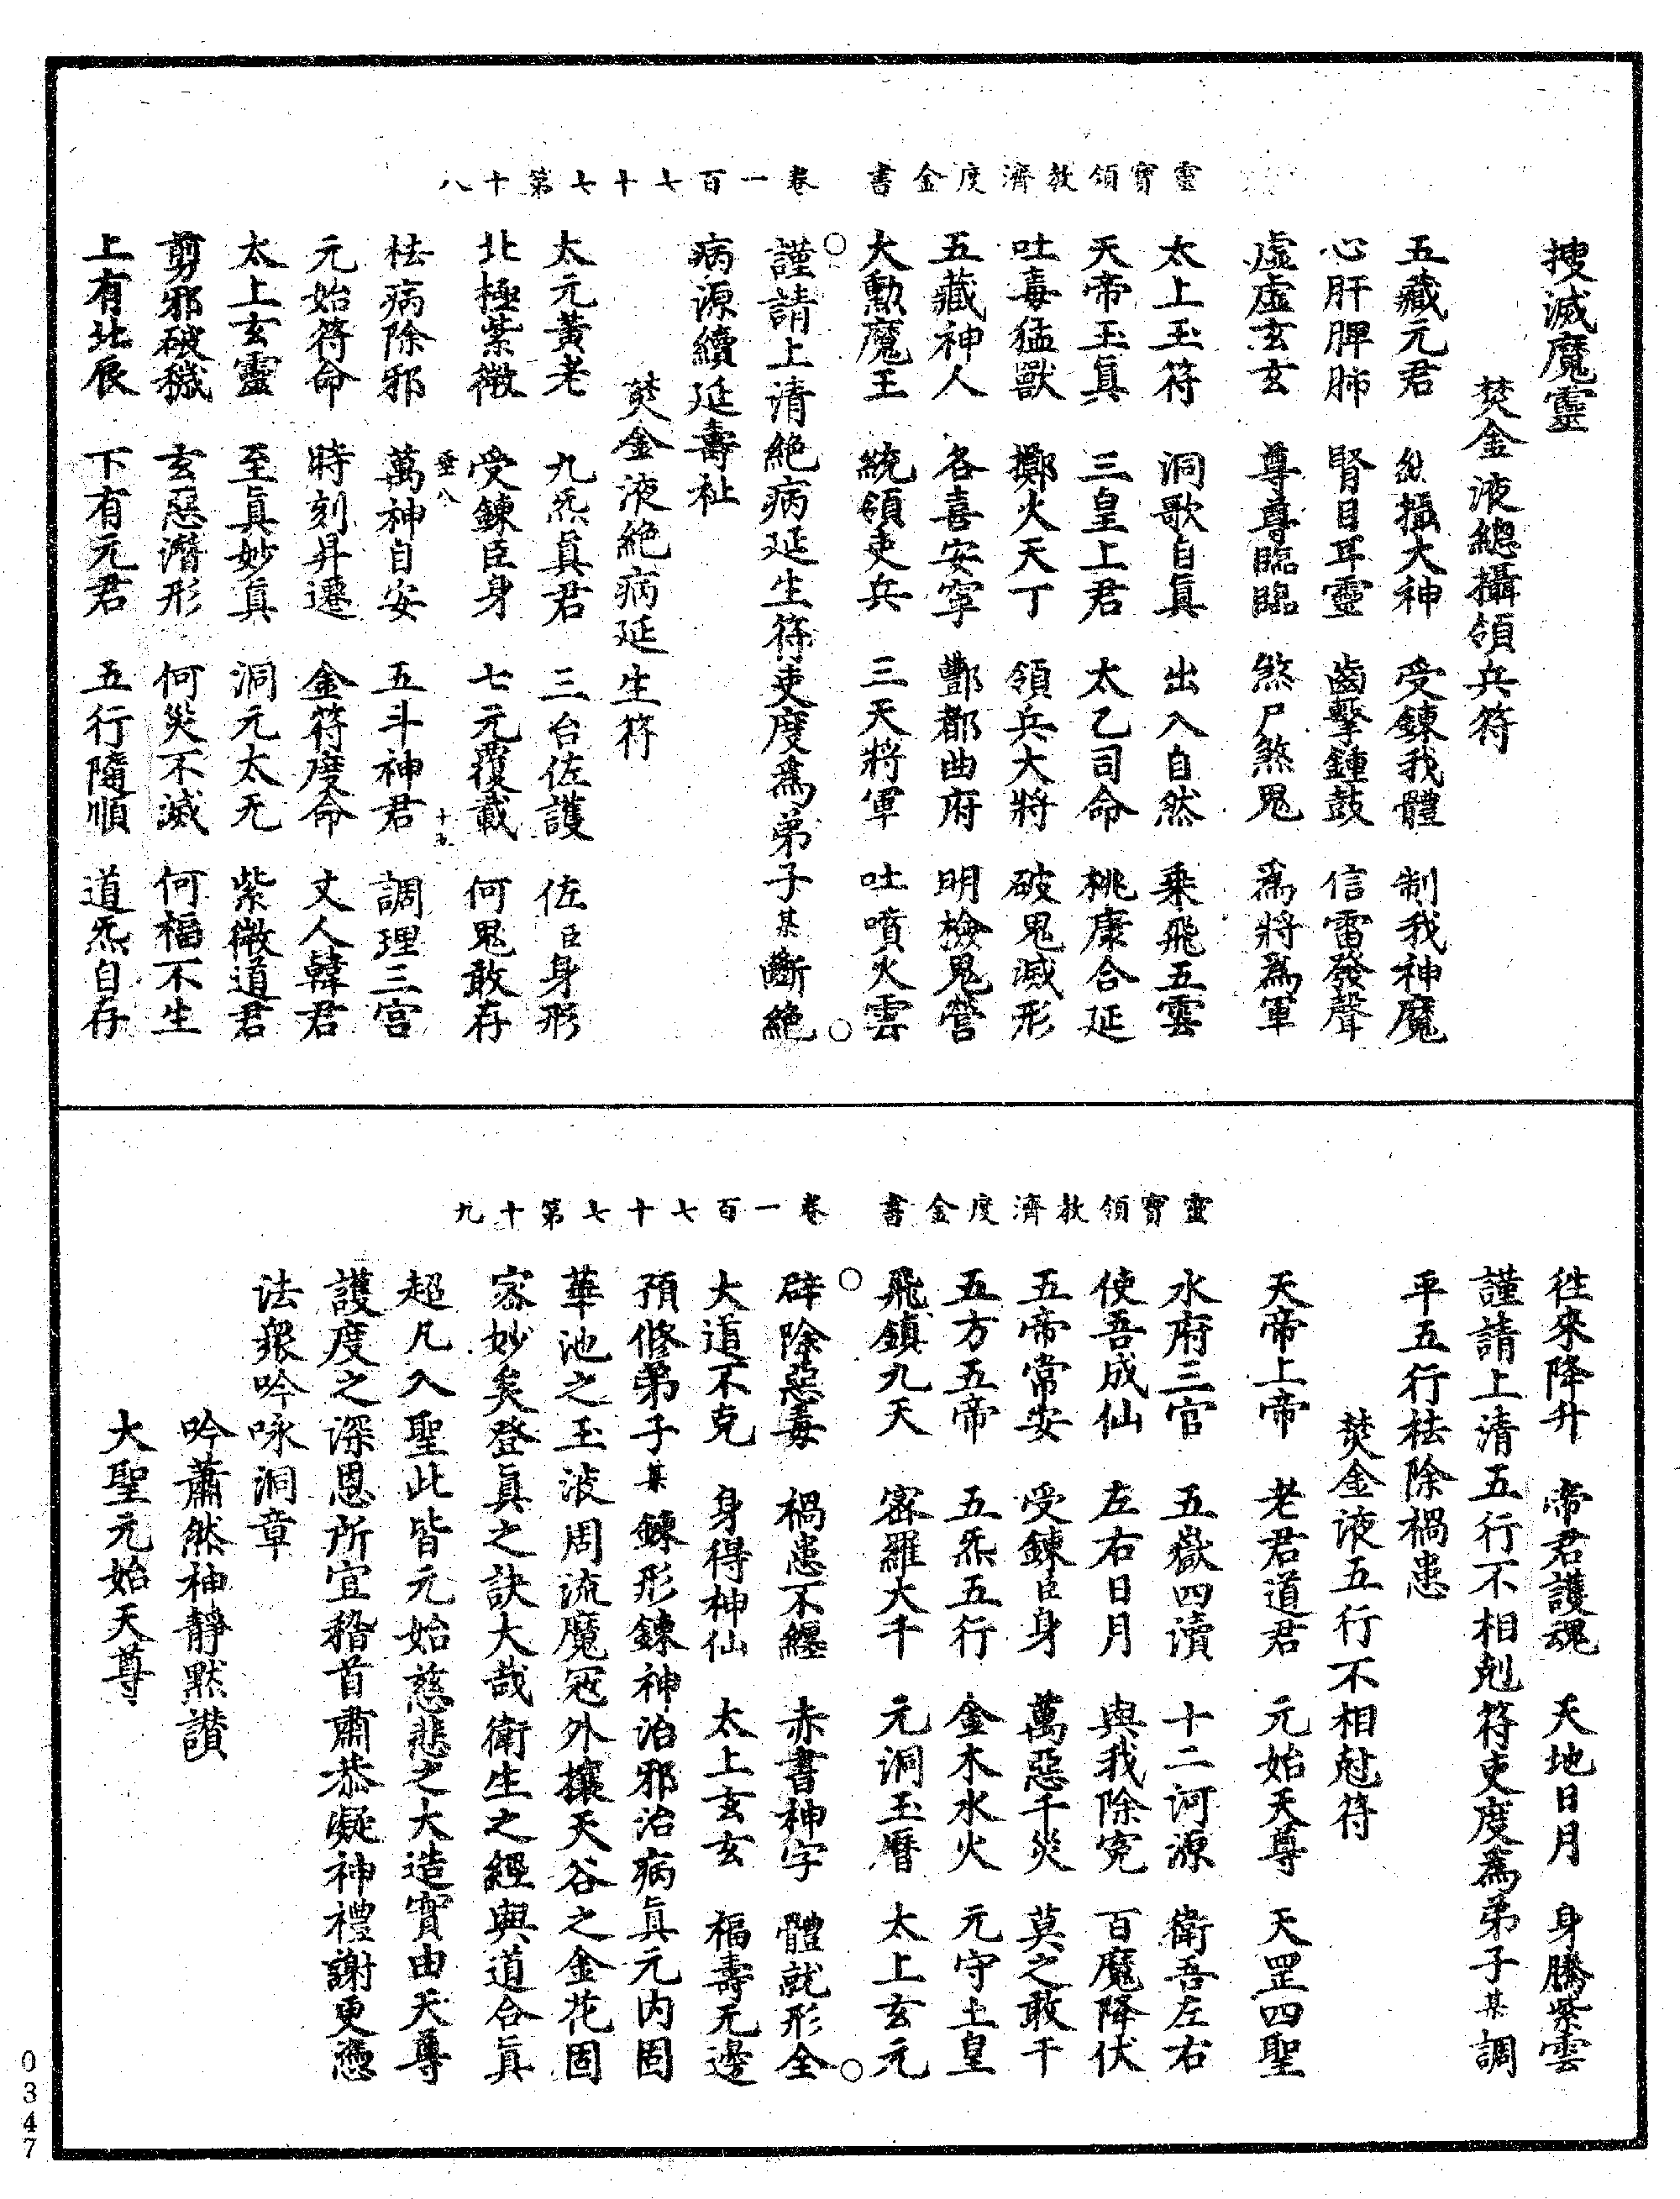 靈寶領教濟度金書　卷一百七十七第十八
搜滅魔靈
焚金液總攝領兵符
五藏元君　總攝大神　受鍊我體　制我神魔
心肝脾肺　腎目耳靈　齒擊鍾鼓　信雷發聲
虛虛玄玄　尊尊臨臨　煞尸煞鬼　爲將爲軍
太上玉符　洞歌自真　出入自然　乘飛五雲
天帝玉真　三皇上君　太乙司命　桃康合延
吐毒猛獸　擲火天丁　領兵大將　破鬼滅形
五藏神人　各喜安寧　酆都曲府　明檢鬼營
大勳魔王　統領吏兵　三天將軍　吐噴火雲
○　○
謹請上清絕病延生符吏度爲弟子某斷絕
病源續延壽祉
焚金液絕病延生符
太元黃老　九炁真君　三台佐護　佐臣身形
北極紫微　受鍊臣身　七元覆載　何鬼敢存
垂八　十五
袪病除邪　萬神自安　五斗神君　調理三宮
元始符命　時刻昇遷　金符度命　丈人韓君
太上玄靈　至真妙真　洞元太无　紫微道君
剪邪破穢　玄惡潛形　何災不滅　何福不生
上有北辰　下有元君　五行隨順　道炁自存
靈寶領教濟度金書　卷一百七十七第十九
往來降升　帝君護魂　天地日月　身騰紫雲
謹請上清五行不相剋符吏度爲弟子某調
平五行袪除禍患
焚金液五行不相尅符
天帝上帝　老君道君　元始天尊　天罡四聖
水府三官　五嶽四瀆　十二河源　衛吾左右
使吾成仙　左右日月　與我除冤　百魔降伏
五帝常安　受鍊臣身　萬惡千災　莫之敢干
五方五帝　五炁五行　金木水火　元守土皇
飛鎮九天　密羅大千　元洞玉曆　太上玄元
○　○
辟除惡毒　禍患不纏　赤書神字　體就形全
大道不克　身得神仙　太上玄玄　福壽无邊
預修弟子某鍊形鍊神治邪治病真元內固
華池之玉液周流魔寇外攘天谷之金花固
密妙矣登真之訣大哉衛生之經與道合真
超凡入聖此皆元始慈悲之大造實由天尊
護度之深恩所宜稽首肅恭凝神禮謝更憑
法衆吟咏洞章
吟蕭然神靜默讚
大聖元始天尊
0347